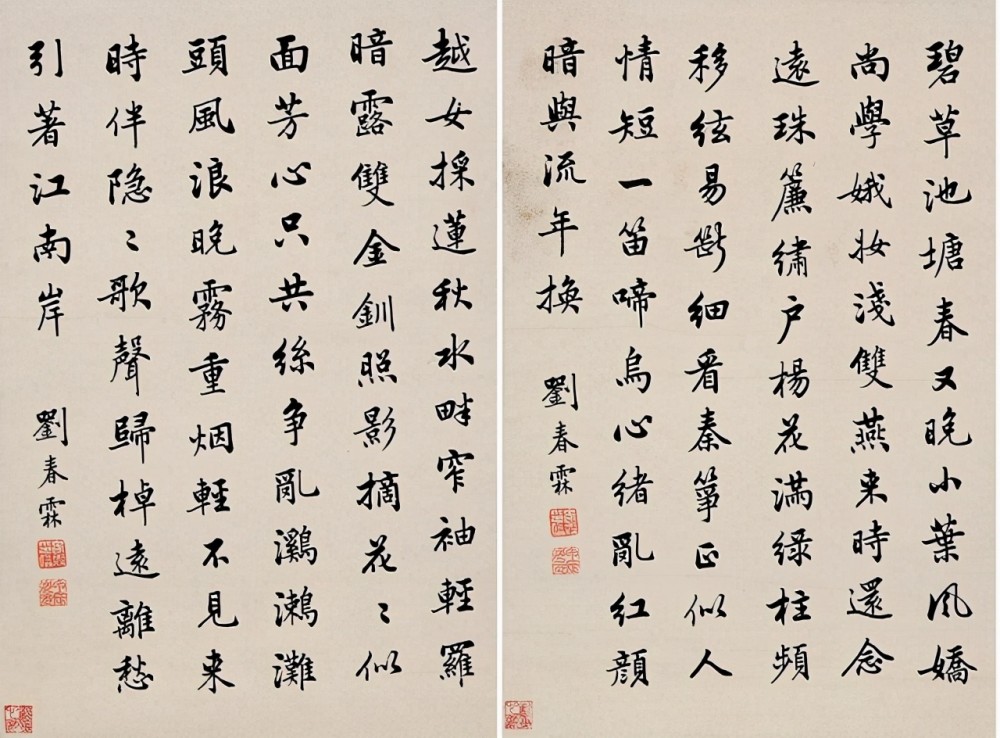 碧草池塘春又晚小葉風嬌
尚學娥妝淺雙燕来時還念
遠珠簾繡户楊花滿緑柱頻
移絃易斷細看秦箏正似人
情短一笛啼烏心緒亂紅顔
暗與流年換 劉春霖
越女採蓮秋水畔窄袖輕羅
暗露雙金釧照影摘花〻似
面芳心只共絲争亂鸂鶒灘
頭風浪晚霧重烟輕不見来
時伴隐〻歌聲歸棹遠離愁
引著江南岸 劉春霖